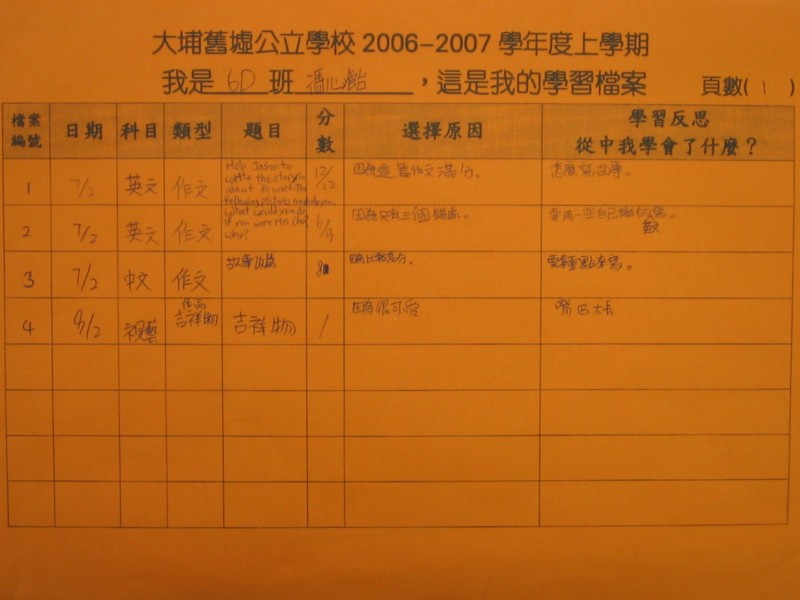 大埔舊墟公立學校 2006-2007 學年度上學期
我是 6D 班 馮心 ，這是我的學習檔案 頁數( 1 )
檔案編號 日期 科目 類型 題目 分數 選擇原因 學習反思 從中我學會了什麼？
1 7/2 英文 作文 Help Jason to write the story 12/12 因為這篇作文滿分。 怎麼寫故事。
2 7/2 英文 作文 What would you do if you were why? 因為只有三個錯處。
3 7/2 中文 作文 故事 因為比較高分。 要重點來寫。
4 9/2 視藝 作品 吉祥物 吉祥物 / 因為很可愛 嘴巴太長